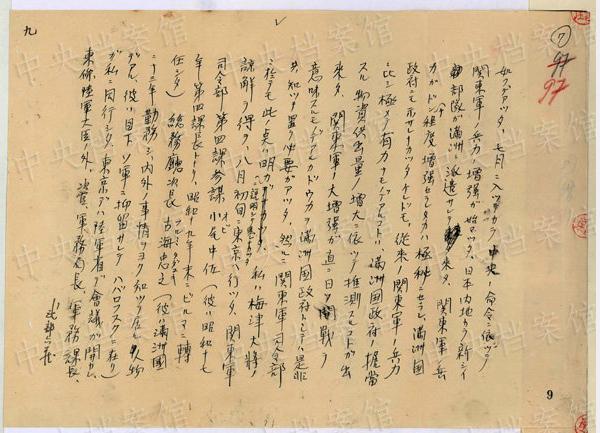 如クデアツタ、七月ニ入ツテカラ中央ノ命令ニ依ツテ
関東軍ノ兵力ノ増強ガ始マツタ、日本内地カラ新シイ
部隊ガ満洲ニ派遣サレテ来タ、関東軍ノ兵
力ガドノ程度増強セラレタカハ極秘ニセラレ、満洲国
政府ニモ示サレナカツタケレドモ、従来ノ関東軍ノ兵力
ニ比シ極メテ有力ナモノデアルコトハ、満洲国政府ノ提出
スル物資供出量ノ増大ニ依ツテ推測スルコトガ出
来タ、関東軍ノ大増強ガ直ニ日ソ開戦ヲ
意味スルモノデアルカドウカヲ満洲国政府トシテハ是非
共知ツテ置ク必要ガアツタ、然ルニ関東軍司令部
ニ於テモ此ノ点ハ明カ
私ハ梅津大将ノ
諒解ヲ得テ、八月初旬ニ東京ヘ行ツタ、関東軍
司令部第四課参謀小尾中佐(彼ハ昭和十七
年第四課長トナリ、昭和十九年末ニビルマニ転
任シタ)総務庁次長古海忠之(彼ハ満洲国
ニ十三年勤務シ、内外ノ事情ヲヨク知ツテ居ル人物
デアル、彼ハ目下ソ軍ニ抑留サレテハバロフスクニ在リ)
ガ私ニ同行シタ、東京デハ陸軍省デ会議ガ開カレ、
東條陸軍大臣ノ外、次官、軍務局長、軍務課長、
武部六蔵
九
⑦
97
97
9
中央档案馆